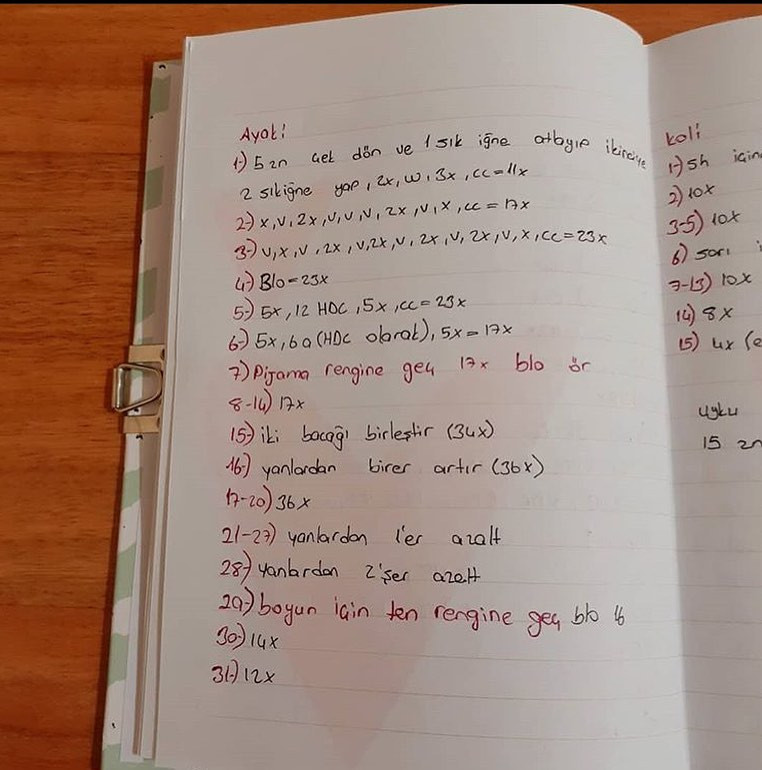 Ayak!
1-) 5 zn çek dön ve 1 sık iğne atlayıp ikinciye
2 sıkiğne yap, 2x, w, 3x, cc=11x
2-) x, v, 2x, v, v, v, 2x, v, x, cc = 17x
3-) v, x, v, 2x, v, 2x, v, 2x, v, 2x, v, x, cc=23x
4-) Blo=23x
5-) 5x, 12 HDC, 5x, cc=23x
6-) 5x, 6a (HDC olarak), 5x=17x
7-) Pijama rengine geç 17x blo ör
8-14) 17x
15-) iki bacağı birleştir (34x)
16-) yanlardan birer artır (36x)
17-20) 36x
21-27) yanlardan 1'er azalt
28-) yanlardan 2'şer azalt
29-) boyun için ten rengine geç blo 16
30-) 14x
31-) 12x
kol!
1-) 5h için
2) 10x
3-5) 10x
6) sarı
7-13) 10x
14) 8x
15) 4x (e
uyku
15 zn